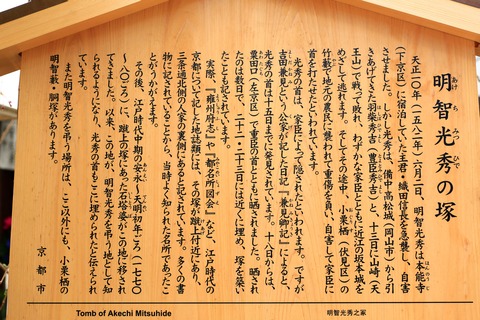 明智光秀の塚
あけちみつひで
天正一〇年(一五八二)六月二日、明智光秀は本能寺
(下京区)に宿泊していた主君・織田信長を急襲し、自害
させました。しかし光秀は、備中高松城(岡山市)から引
きあげてきた羽柴秀吉(豊臣秀吉)と、十三日に山崎(天
王山)で戦って敗れ、わずかな家臣とともに近江の坂本城を
めざして逃れます。そしてその途中、小栗栖(伏見区)の
竹藪で地元の農民に襲われて重傷を負い、自害して家臣に
首を打たせたといわれています。
光秀の首は、家臣によって隠されたといわれます。ですが
吉田兼見という公家が記した日記『兼見卿記』によると、
光秀の首は十五日までに発見されています。十八日からは、
粟田口(左京区)で重臣の首とともに晒されました。晒され
たのは数日で、二十二・二十三日には近くに埋め、塚を築い
たことも記されています。
実際、『雍州府志』や『都名所図会』など、江戸時代の
京都について記した地誌類には、その塚が蹴上付近にあり、
三条通北側の人家の裏側にあると記されています。多くの書
物に記されていることから、当時よく知られた名所であったこ
とがうかがえます。
その後、江戸時代中期の安永~天明初年ごろ(一七七〇
~八〇ごろ)に、蹴上の塚にあった石塔婆がこの地に移され
てきました。以来、この地が、明智光秀を弔う地として知
られるようになり、光秀の首もここに埋められたと伝えられ
ています。
また明智光秀を弔う場所は、ここ以外にも、小栗栖の
明智藪・胴塚があります。
京都市
Tomb of Akechi Mitsuhide
明智光秀之冢